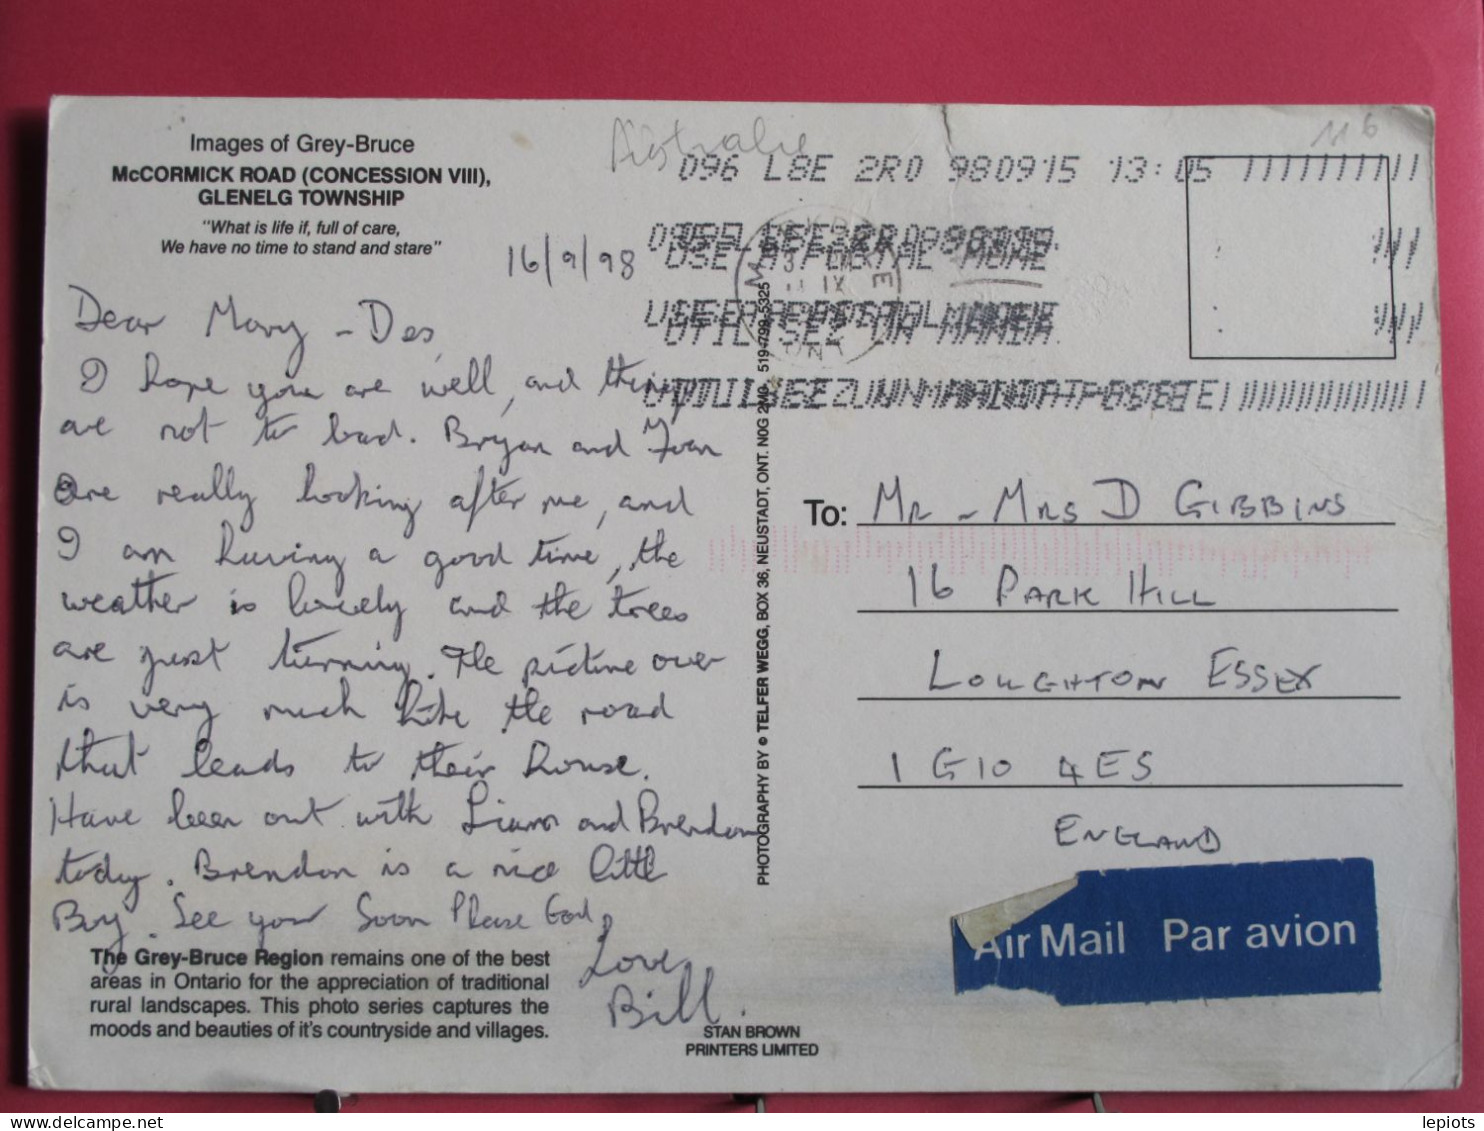 Images of Grey-Bruce
McCORMICK ROAD (CONCESSION VIII),
GLENELG TOWNSHIP
"What is life if, full of care,
We have no time to stand and stare"
Australie
116
096 L8E 2R0 980915 13:05
16/9/98
Dear Mary - Des
I hope you are well, and things
are not to bad. Bryan and Fran
are really looking after me, and
I am having a good time, the
weather is lovely and the trees
are just turning. The picture over
is very much like the road
that leads to their house.
Have been out with Liam and Brendan
today. Brendan is a nice little
Boy. See you soon Please God,
Love
Bill.
The Grey-Bruce Region remains one of the best
areas in Ontario for the appreciation of traditional
rural landscapes. This photo series captures the
moods and beauties of it's countryside and villages.
PHOTOGRAPHY BY © TELFER WEGG, BOX 36, NEUSTADT, ONT. N0G 2M0 519-799-5325
STAN BROWN
PRINTERS LIMITED
To: MR - MRS D GIBBINS
16 PARK HILL
LOUGHTON ESSEX
1G10 4ES
ENGLAND
Air Mail Par avion
lepiots
www.delcampe.net